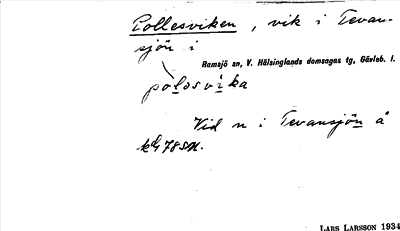 Pollesviken, vik i Tevan-
sjön i
Ramsjö sn, V. Hälsinglands domsagas tg, Gävleb. l.
pålosvika
Vid n i Tevansjön å
kbl 78SH.
LARS LARSSON 1934